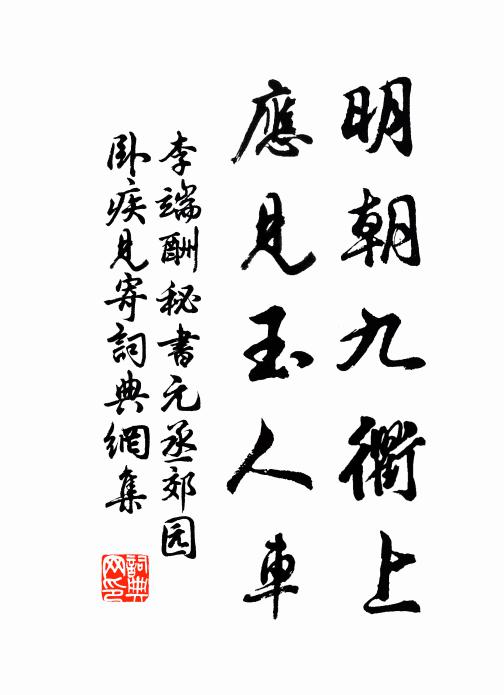 明朝九衢上
應見玉人車
李端酬秘書元丞郊园
卧疾見寄詞典網集
詞典网印